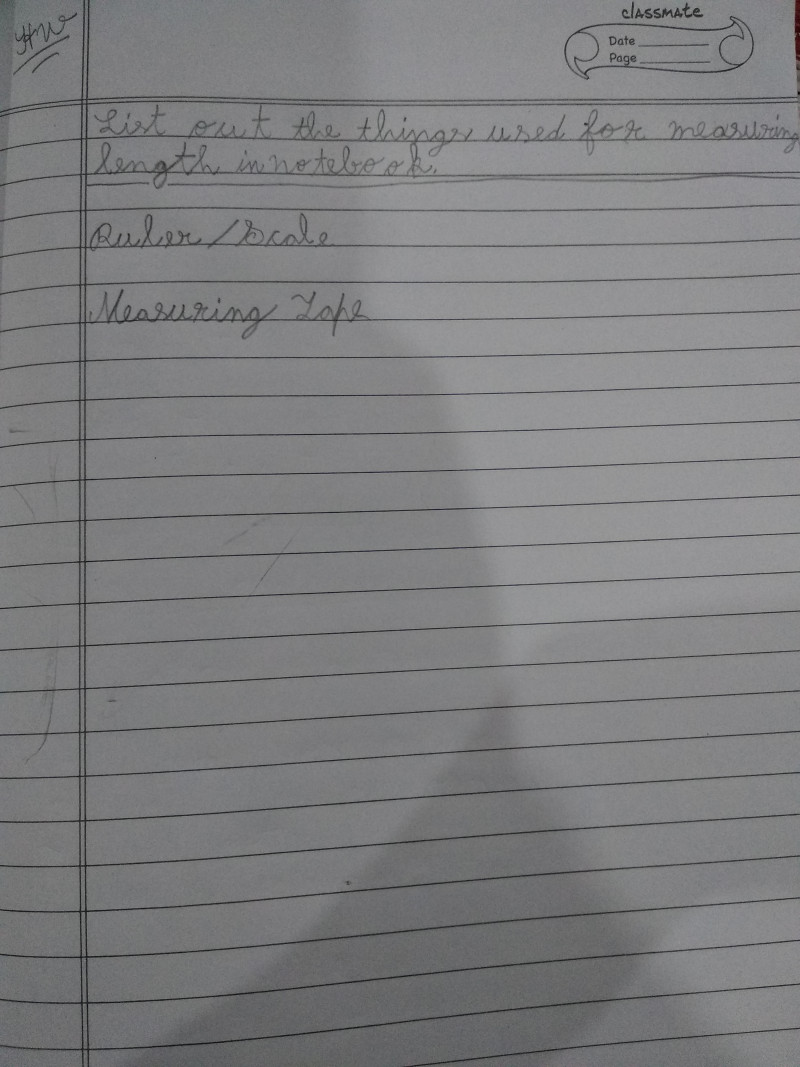 HW
classmate
Date
Page
List out the things used for measuring
length in notebook.
Ruler / Scale
Measuring Tape